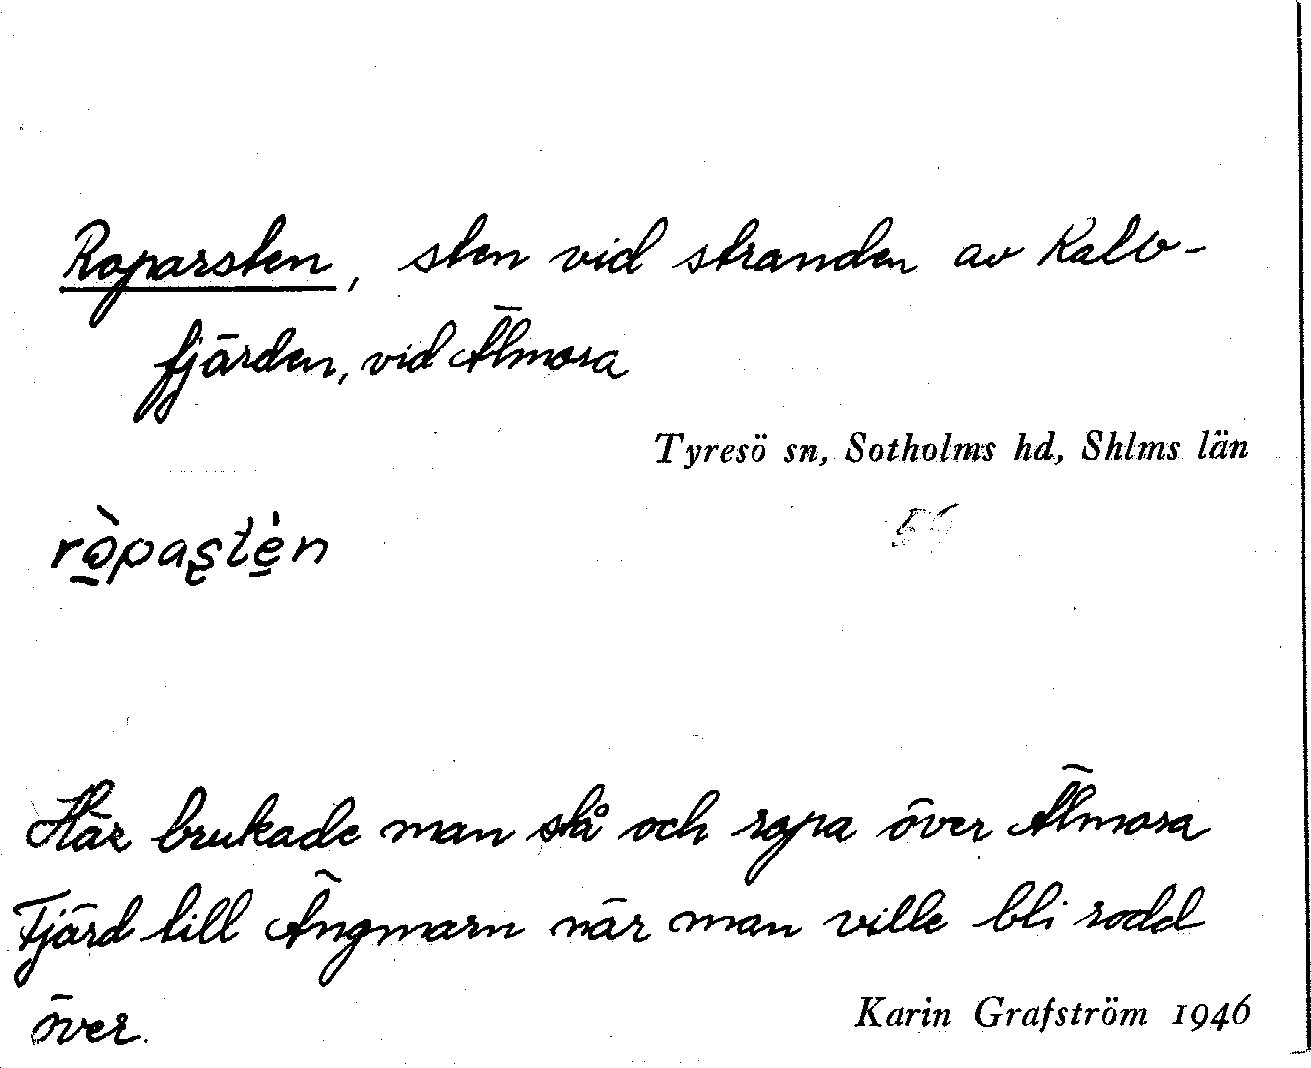 Roparsten, sten vid stranden av Kalv-
fjärden, vid Älmora
Tyresö sn, Sotholms hd, Shlms län
56
rò̱paʂtè̱n
Här brukade man stå och ropa över Älmora
Fjärd till Ängmarn när man ville bli rodd
över.
Karin Grafström 1946